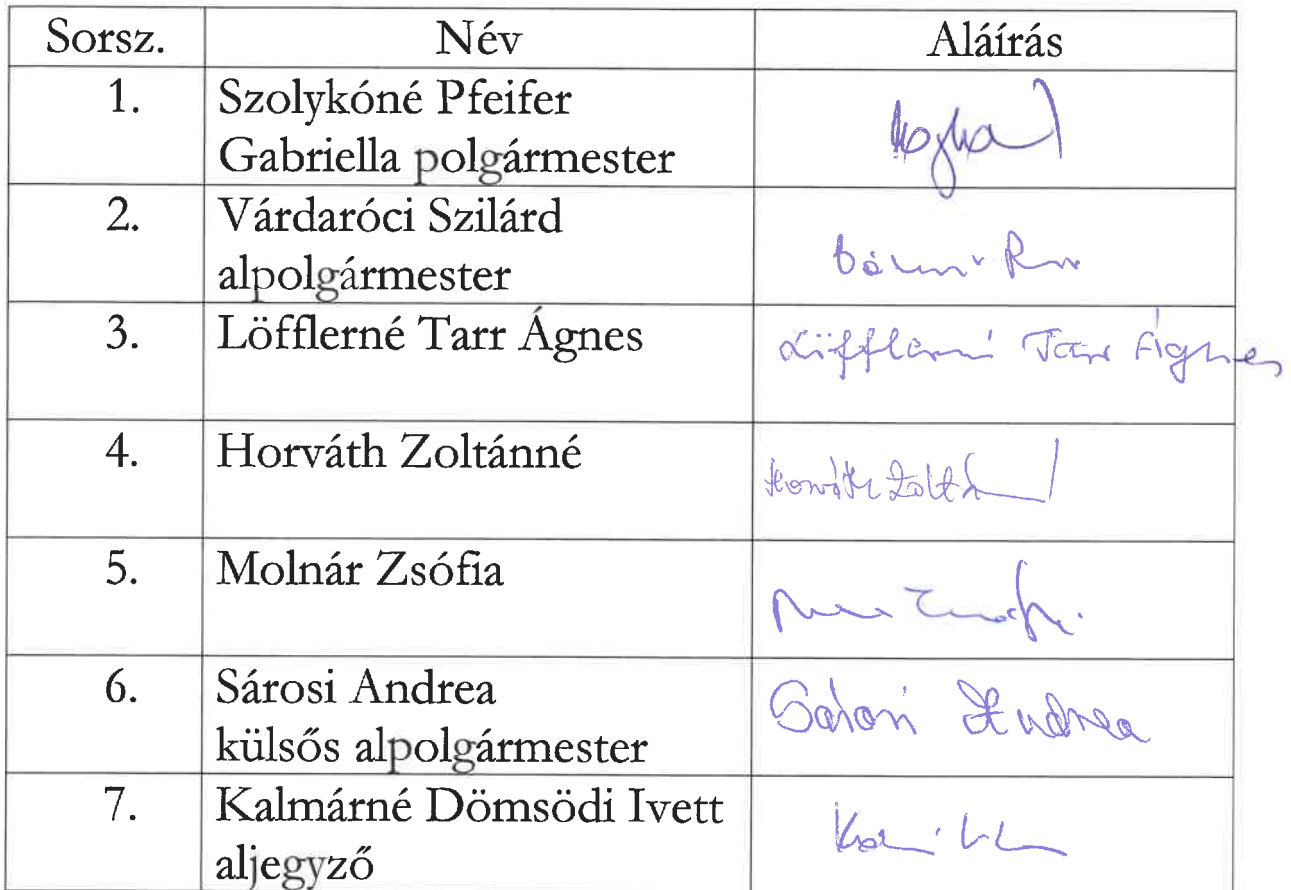 Sorsz. Név Aláírás
1. Szolykóné Pfeifer
Gabriella polgármester
2. Várdaróci Szilárd
alpolgármester
3. Löfflerné Tarr Ágnes Löfflerné Tarr Ágnes
4. Horváth Zoltánné Horváth Zoltán
5. Molnár Zsófia
6. Sárosi Andrea Sárosi Andrea
külsős alpolgármester
7. Kalmárné Dömsödi Ivett
aljegyző